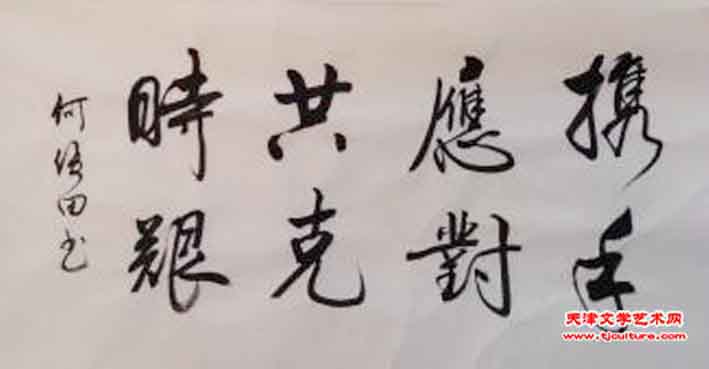 携手
應對
共克
時艱
何田书
天津文学艺术网
www.tjculture.com